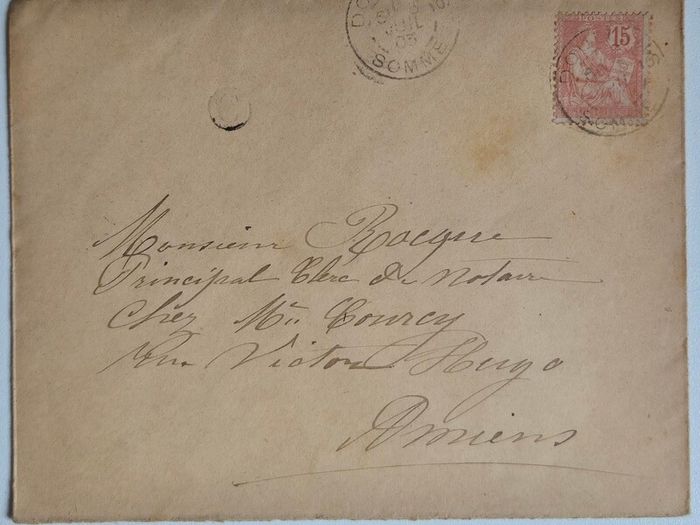 SOMME
05
15
POSTES
Monsieur Rocque
Principal Clerc de Notaire
Chez Me Courcy
Rue Victor Hugo
Amiens